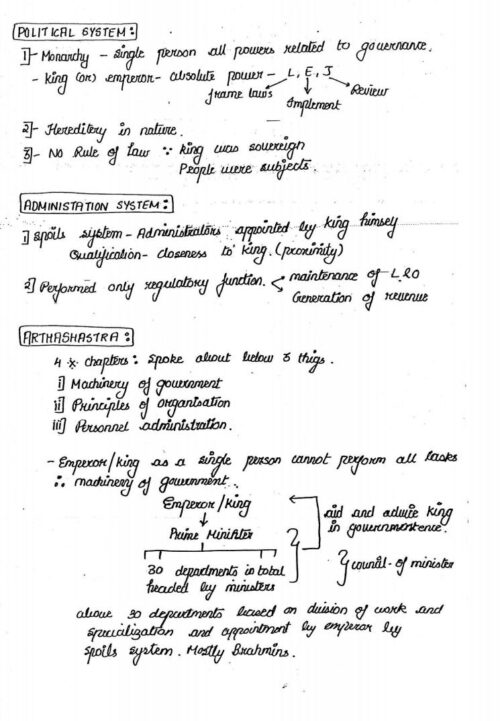 POLITICAL SYSTEM :
1]- Monarchy - single person all powers related to governance.
- King (or) emperor- absolute power - L, E, J
frame laws Implement Review
2]- Hereditery in nature.
3]- No Rule of Law ∵ king was sovereign
People were subjects.
ADMINISTATION SYSTEM :
1] Spoils system - Administrators appointed by king himself
Qualification- closeness to king. (proximity)
2] Performed only regulatory function. maintenance of L&O
Generation of revenue
ARTHASHASTRA :
4 * chapters : Spoke about below 3 thigs.
i] Machinery of government
ii] Principles of organisation
iii] Personnel administration.
- Emperor/king as a single person cannot perform all tasks
∴ machinery of government.
Emperor/King
Prime Minister
30 departments in total
headed by ministers
aid and advice king
in
} council- of minister
above 30 departments based on division of work and
specialization and appointment by emperor by
spoils system. Mostly Brahmins.